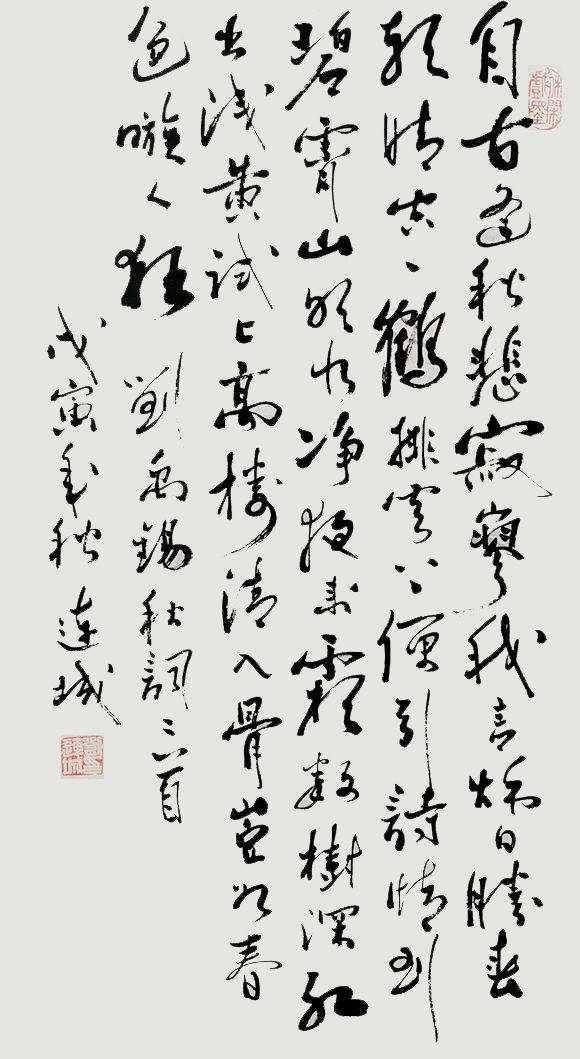 自古逢秋悲寂寥我言秋日勝春
朝晴空一鶴排雲上便引詩情到
碧霄山明水净夜來霜數樹深紅
出浅黄試上高樓清入骨豈如春
色嗾人狂 劉禹錫秋詞二首
戊寅年秋 連城